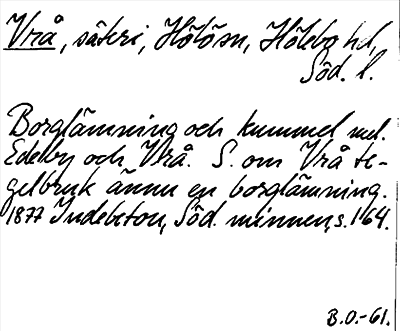 Vrå, säteri, Hölösn, Hölebo hd,
Söd. l.
Borglämning och kummel mel.
Edeby och Vrå. S. om Vrå te-
gelbruk ännu en borglämning.
1877 Indebetou, Söd. minnen, s. 164.
B.O.-61.